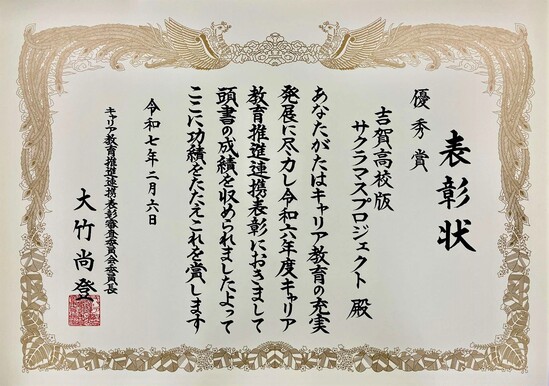 表彰状
優秀賞
吉賀高校版
サクラマスプロジェクト 殿
あなたがたはキャリア教育の充実
発展に尽力し令和六年度キャリア
教育推進連携表彰におきまして
頭書の成績を収められましたよって
ここに功績をたたえこれを賞します
令和七年二月六日
キャリア教育推進連携表彰審査委員会委員長
大竹尚登